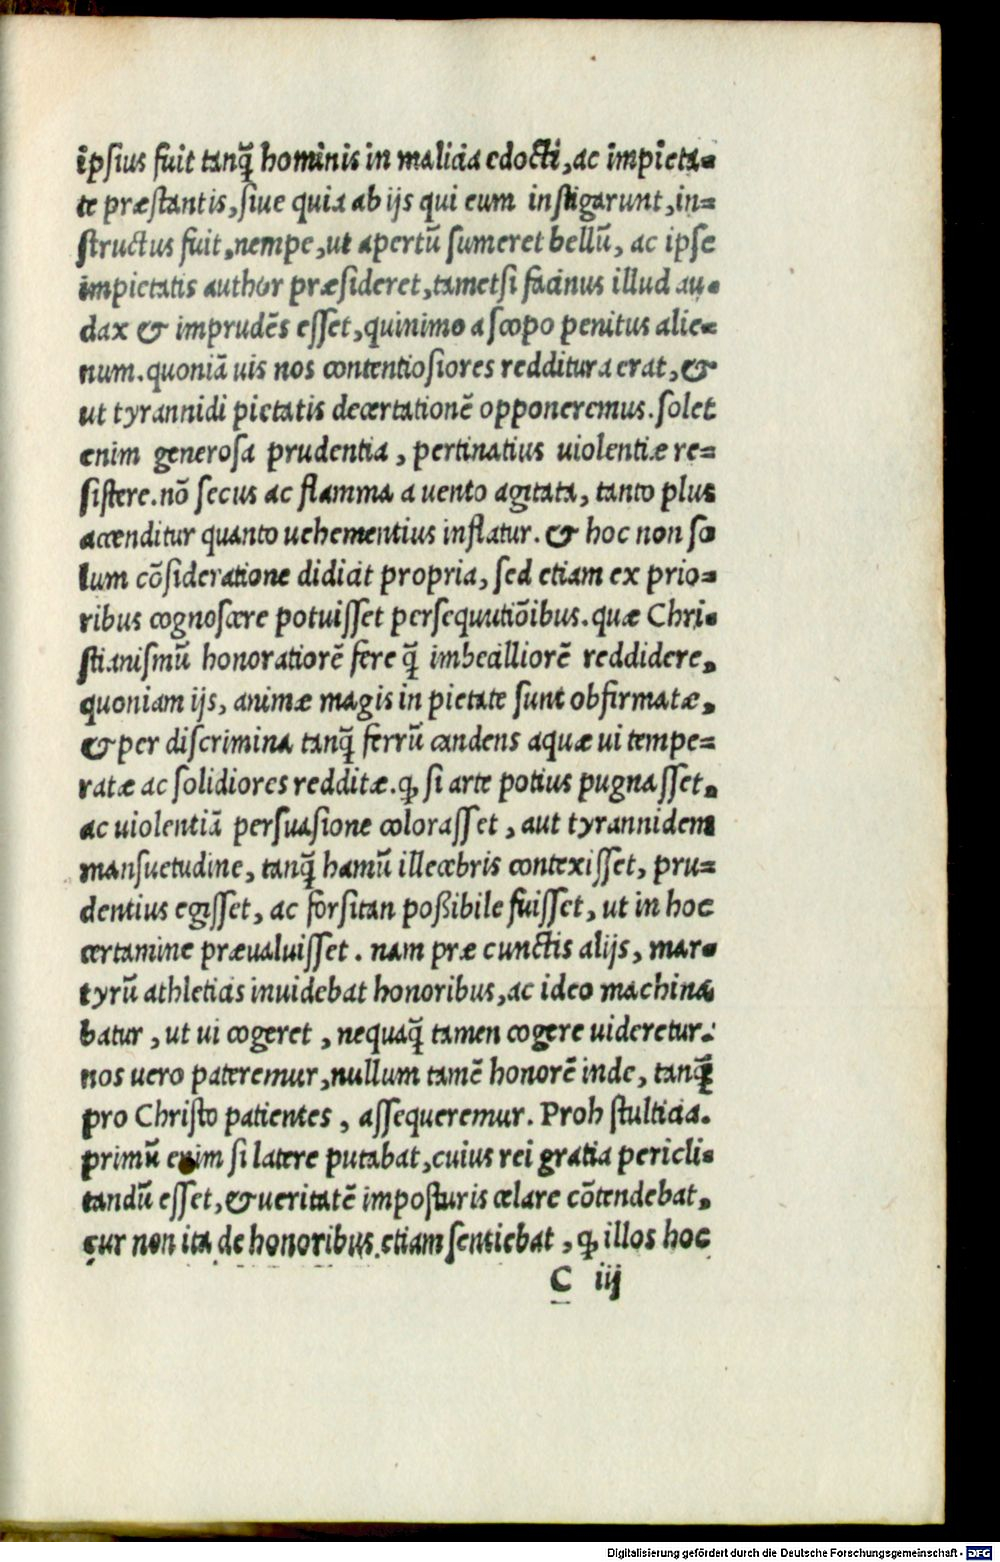 ipsius fuit tanq̃ hominis in malicia edocti, ac impieta-
te præstantis, siue quia ab ijs qui eum instigarunt, in-
structus fuit, nempe, ut apertũ sumeret bellũ, ac ipse
impietatis author præsideret, tametsi facinus illud au-
dax & imprudẽs esset, quinimo a scopo penitus alie-
num. quoniã uis nos contentiosiores redditura erat, &
ut tyrannidi pietatis decertationẽ opponeremus. solet
enim generosa prudentia, pertinatius uiolentiæ re-
sistere. nõ secus ac flamma a uento agitata, tanto plus
accenditur quanto uehementius inflatur. & hoc non so
lum cõsideratione didicit propria, sed etiam ex prio-
ribus cognoscere potuisset persequutiõibus. quæ Chri-
stianismũ honoratiorẽ fere q̃ imbecilliorẽ reddidere,
quoniam ijs, animæ magis in pietate sunt obfirmatæ,
& per discrimina tanq̃ ferrũ candens aquæ ui tempe-
ratæ ac solidiores redditæ. ꝙ si arte potius pugnasset,
ac uiolentiã persuasione colorasset, aut tyrannidem
mansuetudine, tanq̃ hamũ illecebris contexisset, pru-
dentius egisset, ac forsitan poßibile fuisset, ut in hoc
certamine præualuisset. nam præ cunctis alijs, mar-
tyrũ athleticis inuidebat honoribus, ac ideo machina
batur, ut ui cogeret, nequaq̃ tamen cogere uideretur:
nos uero pateremur, nullum tamẽ honorẽ inde, tanq̃
pro Christo patientes, assequeremur. Proh stulticia.
primũ enim si latere putabat, cuius rei gratia pericli-
tandũ esset, & ueritatẽ imposturis celare cõtendebat,
cur non ita de honoribus etiam sentiebat, ꝙ illos hoc
C iij
Digitalisierung gefördert durch die Deutsche Forschungsgemeinschaft - DFG